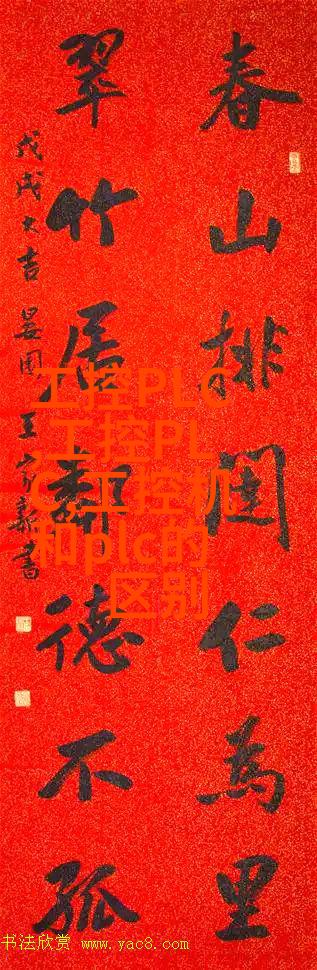 春山排闥仁為里
翠竹居鄰德不孤
戊戌大吉 晏園 王家新書
工控PLC
,工控PL
C,工控机
和plc的
区别
书法欣赏 www.yac8.com